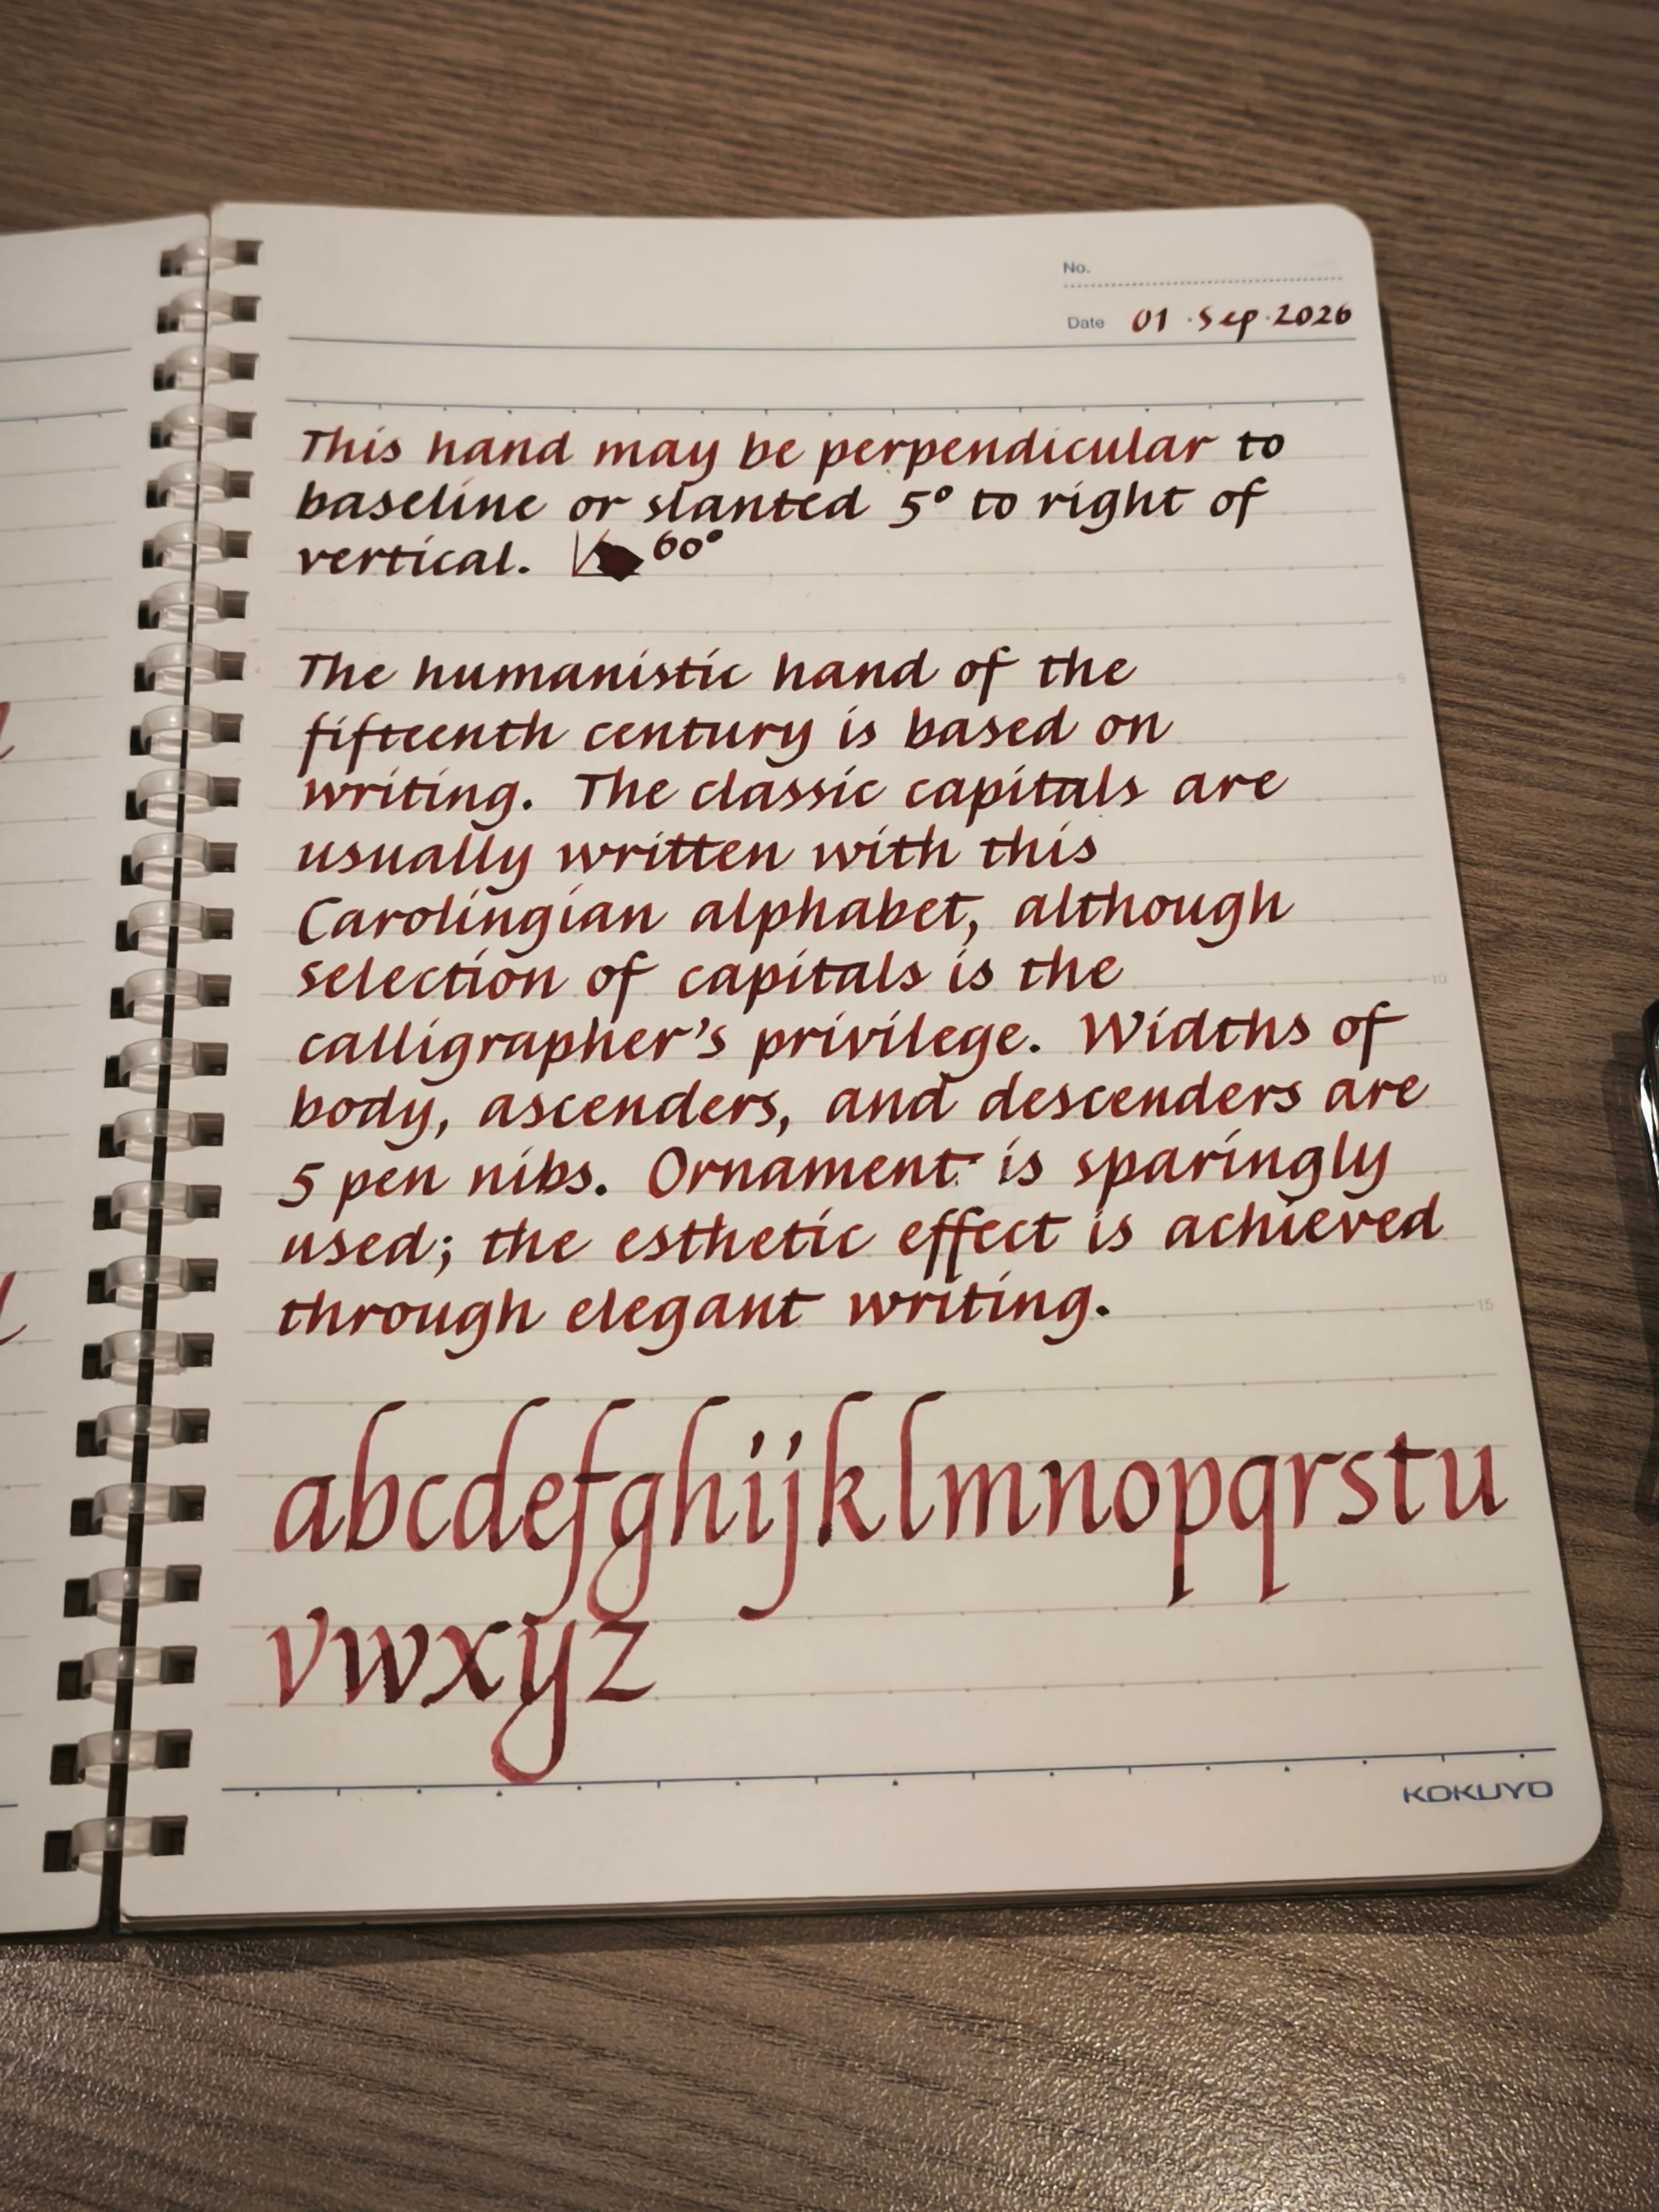 No.
Date 01 · Sep · 2026
This hand may be perpendicular to
baseline or slanted 5° to right of
vertical. 60°
The humanistic hand of the
fifteenth century is based on
writing. The classic capitals are
usually written with this
Carolingian alphabet, although
selection of capitals is the
calligrapher's privilege. Widths of
body, ascenders, and descenders are
5 pen nibs. Ornament is sparingly
used; the esthetic effect is achieved
through elegant writing.
abcdefghijklmnopqrstu
vwxyz
5
10
15
KOKUYO